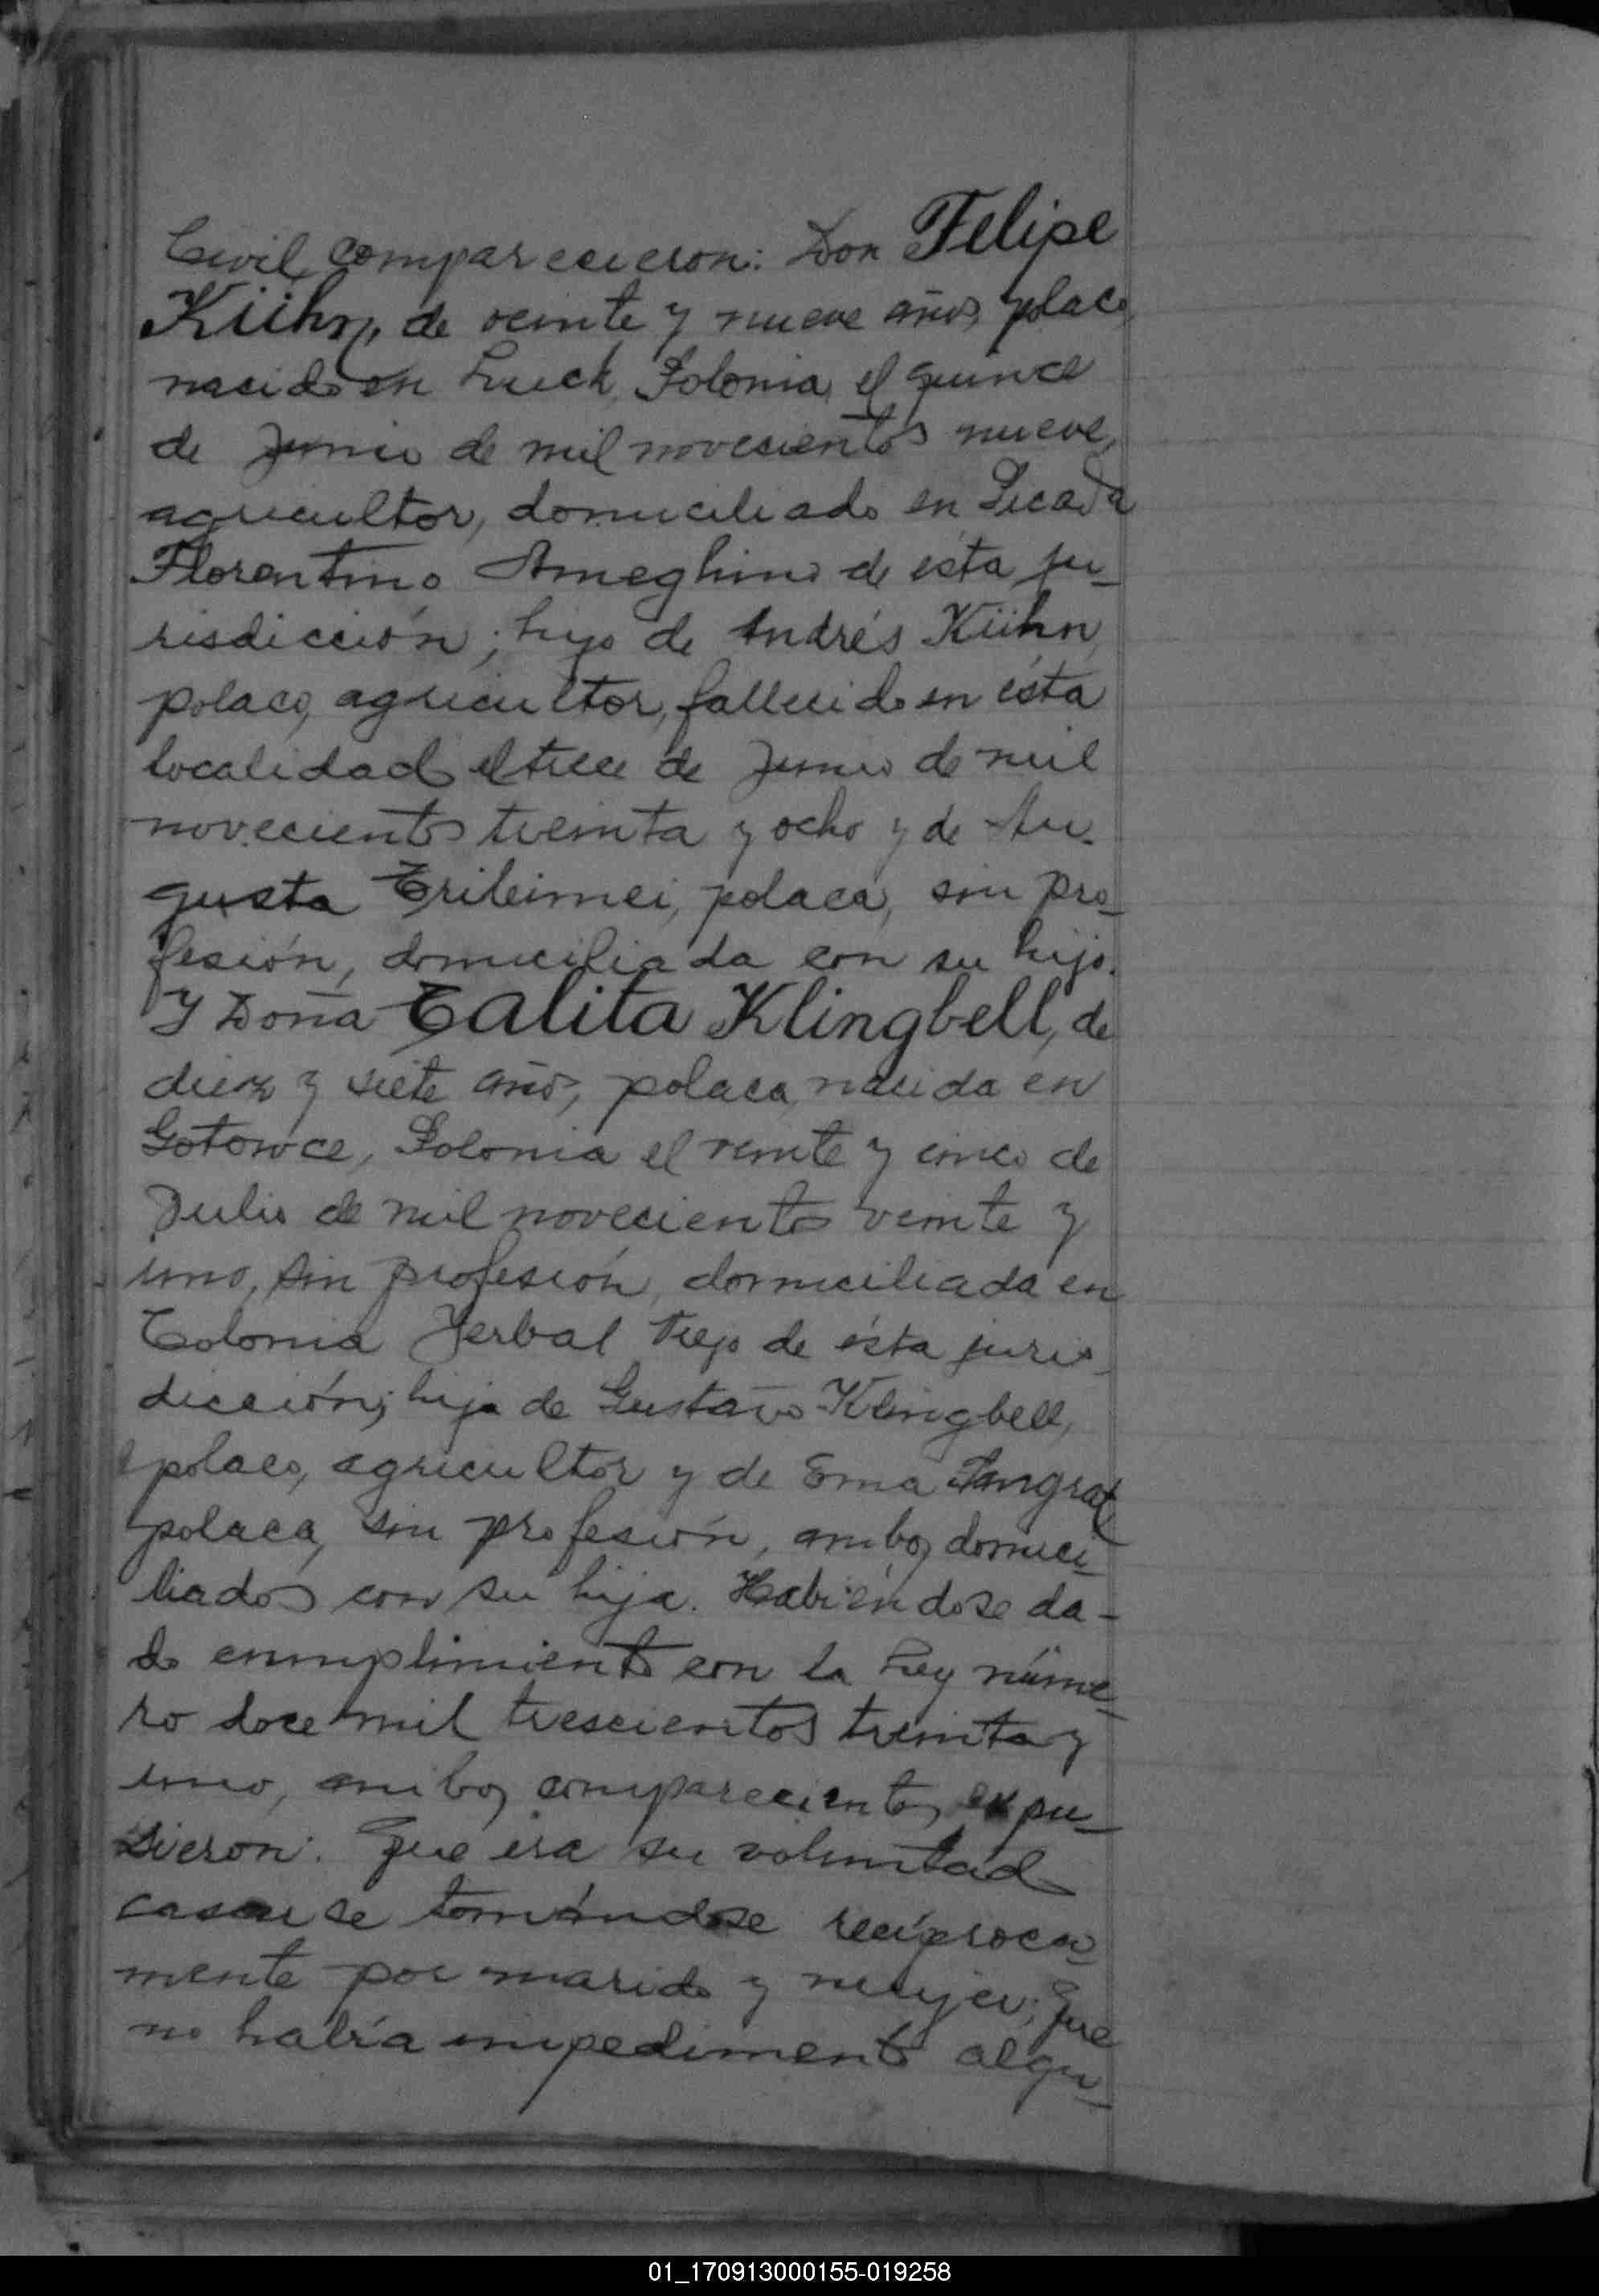 Civil, comparecieron: Don Felipe
Kühn, de veinte y nueve años, polaco,
nacido en Luck, Polonia, el quince
de Junio de mil novecientos nueve,
agricultor, domiciliado en Picada
Florentino Ameghino de ésta ju-
risdicción; hijo de Andrés Kühn,
polaco, agricultor, fallecido en ésta
localidad el trece de Junio de mil
novecientos treinta y ocho y de Au-
gusta polaca, sin pro-
fesión, domiciliada con su hijo.
Y Doña Talita Klingbell, de
diez y siete años, polaca, nacida en
Gotowce, Polonia el veinte y cinco de
Julio de mil novecientos veinte y
uno, sin profesión, domiciliada en
Colonia Yerbal Viejo de ésta juris-
dicción; hija de Gustavo Klingbell,
polaco, agricultor y de Ema
polaca, sin profesión, ambos domici-
liados con su hija. Habiéndose da-
do cumplimiento con la Ley núme-
ro doce mil trescientos treinta y
uno, ambos comparecientes, expu-
sieron: Que era su voluntad
casarse tomándose recíproca-
mente por marido y mujer; que
no había impedimento algu-
01_170913000155-019258